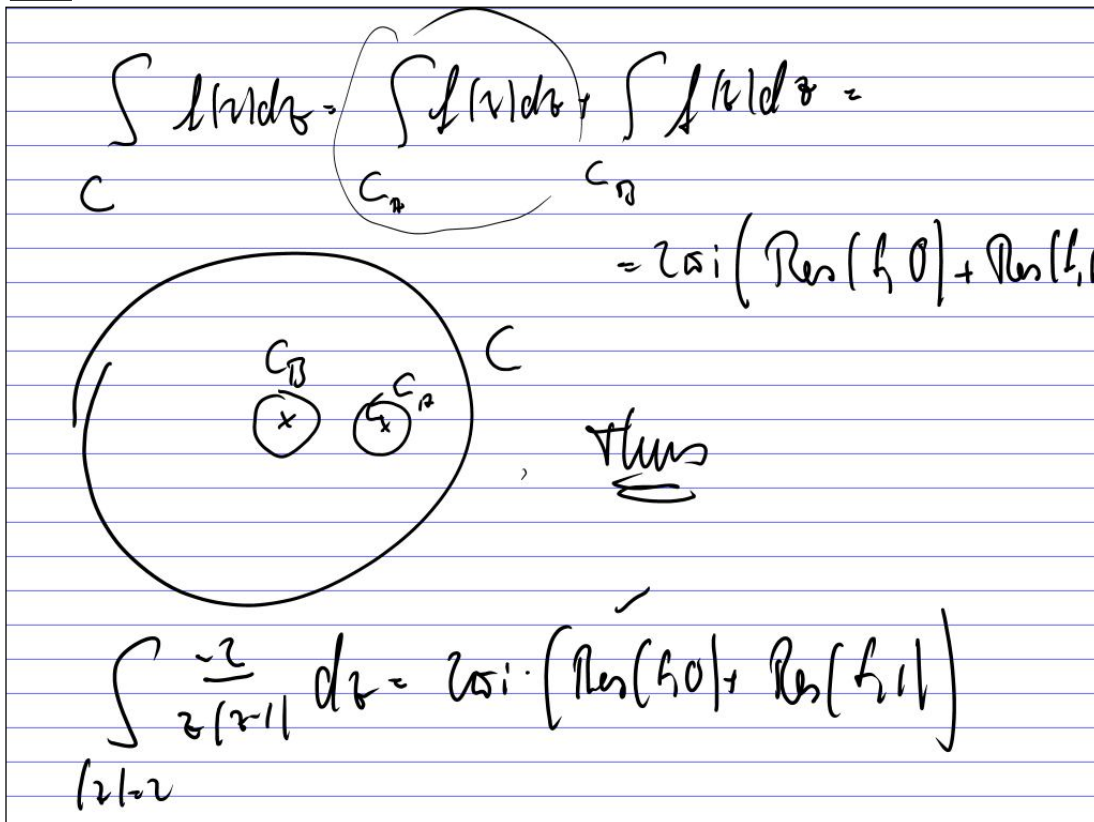 ∫_C f(z)dz = ∫_{C_A} f(z)dz + ∫_{C_B} f(z)dz =
= 2πi ( Res(f, 0) + Res(f, 1
C_B
C_A
C
, Thus
∫_{|z|=2} \frac{-2}{z(z-1)} dz = 2πi · ( Res(f, 0) + Res(f, 1) )